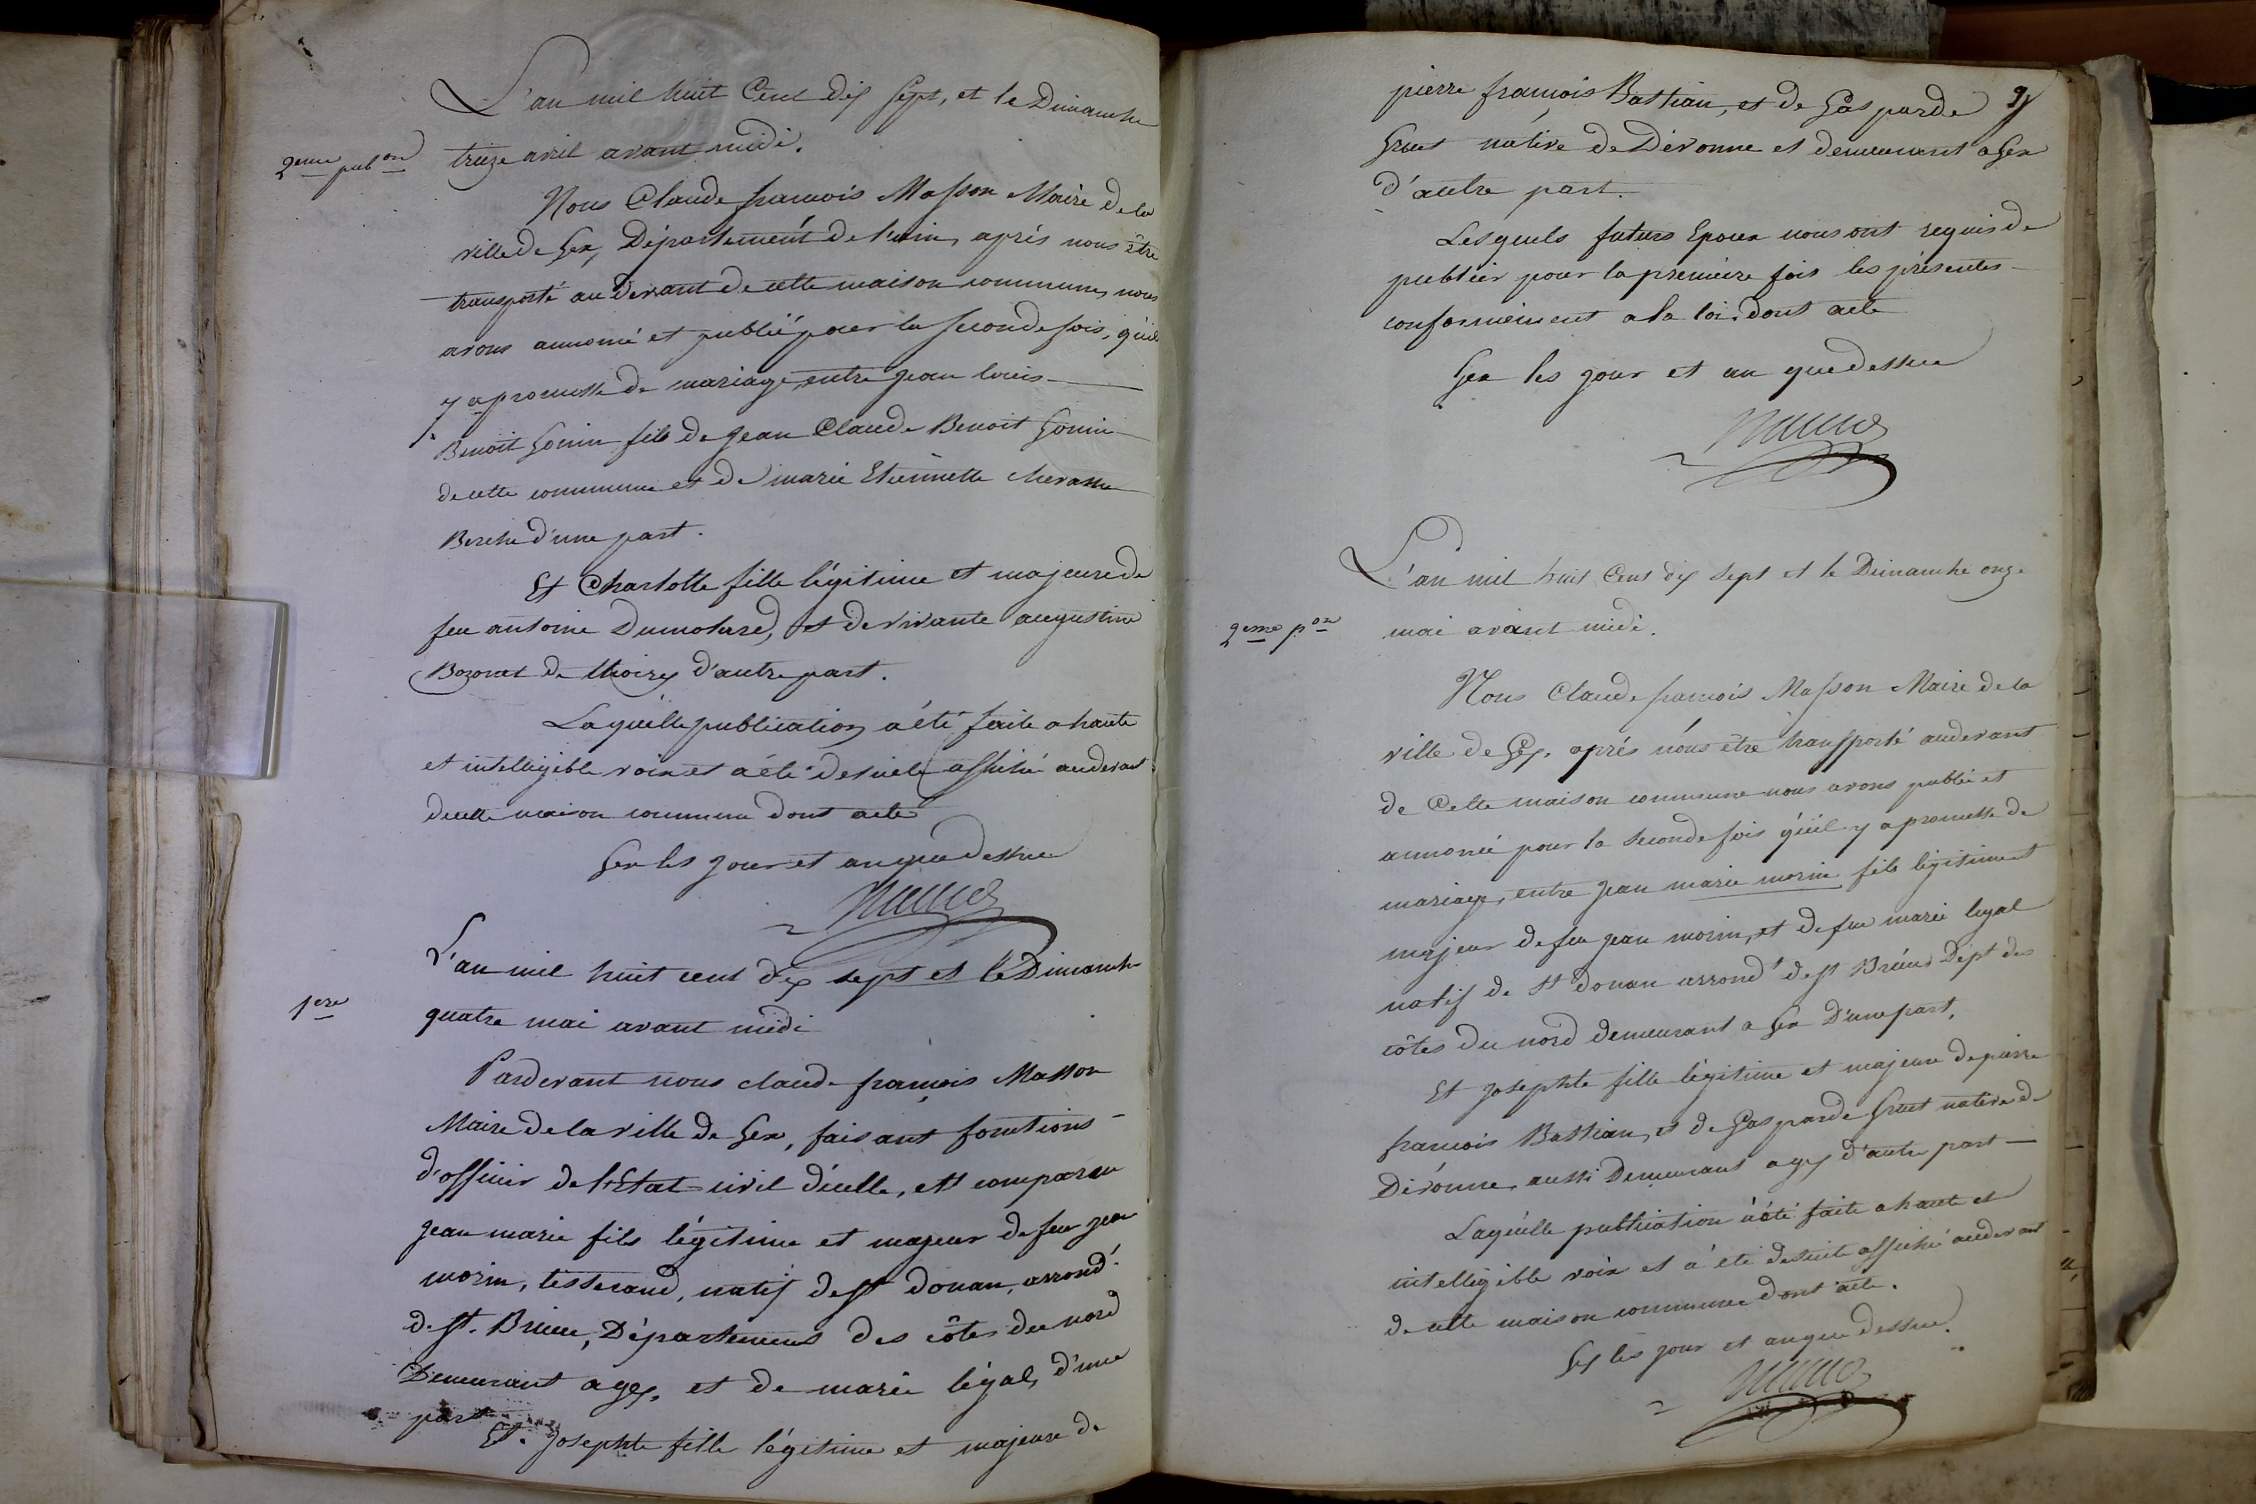 L'an mil huit Cent dix sept, et le Dimanche
2eme pubon
treize avril avant midi.
Nous Claude françois Masson Maire de la
ville de Gex, Département de l'ain, après nous être
transporté au devant de cette maison commune, nous
avons annoncé et publié pour la seconde fois, qu'il
y a promesse de mariage, entre jean louis
Benoit Gonin fils de jean Claude Benoit Gonin
de cette commune et de marie Etiennette
d'une part.
Et Charlotte fille légitime et majeure de
feu antoine Dumolard, et de vivante augustine
Bozonat de thoiry d'autre part.
Laquelle publication a été faite a haute
et intelligible voix et a été desuite affiché au devant
de cette maison commune dont acte
Gex les jour et an que dessus
L'an mil huit cent dix sept et le Dimanche
1ere
quatre mai avant midi
Pardevant nous claude françois Masson
Maire de la ville de Gex, faisant fonctions
d'officier de l'Etat civil d'icelle, est comparu
jean marie fils légitime et majeur de feu jean
morin, tisserand, natif de st donan, arrondt
de st. Brieuc, Département des côtes du nord
Demeurant a gex, et de marie légal, d'une
part
Et. josephte fille légitime et majeure de
pierre françois Bastian, et de Gasparde 9
Gruet native de Divonne et demeurant a Gex
d'autre part.
Lesquels futurs Epoux nous ont requis de
publier pour la première fois les présentes
conformément a la loi. dont acte
Gex les jour et an que dessus
L'an mil huit Cent dix sept et le Dimanche onze
2eme pon
mai avant midi.
Nous Claude françois Masson Maire de la
ville de Gex, après nous être transporté au devant
de Cette maison commune nous avons publié et
annoncé pour la seconde fois qu'il y a promesse de
mariage, entre jean marie morin fils légitime et
majeur de feu jean morin, et de feue marie legal
natif de st donan arrondt de st Brieuc Dépt des
côtes du nord demeurant a Gex D'une part,
Et josephte fille légitime et majeure de pierre
françois Bastian, et de Gasparde Gruet native de
Divonne, aussi Demeurant a gex d'autre part
Laquelle publication a été faite a haute et
intelligible voix et a été desuite affiché au devant
de cette maison commune dont acte.
Gex les jour et an que dessus.